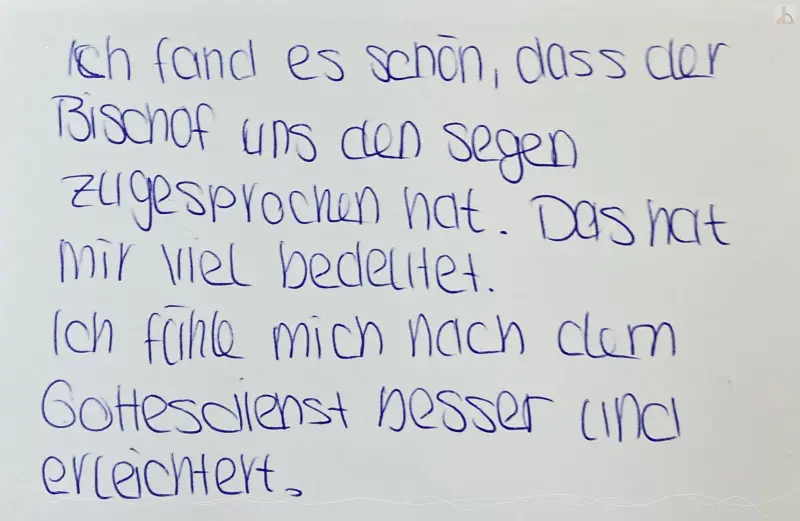 Ich fand es schön, dass der
Bischof uns den segen
zugesprochen hat. Das hat
mir viel bedeutet.
Ich fühle mich nach dem
Gottesdienst besser und
erleichtert.